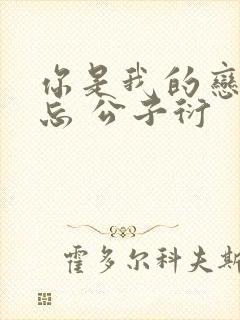 你是我的戀
忘 公子衍
霍多尔科夫斯